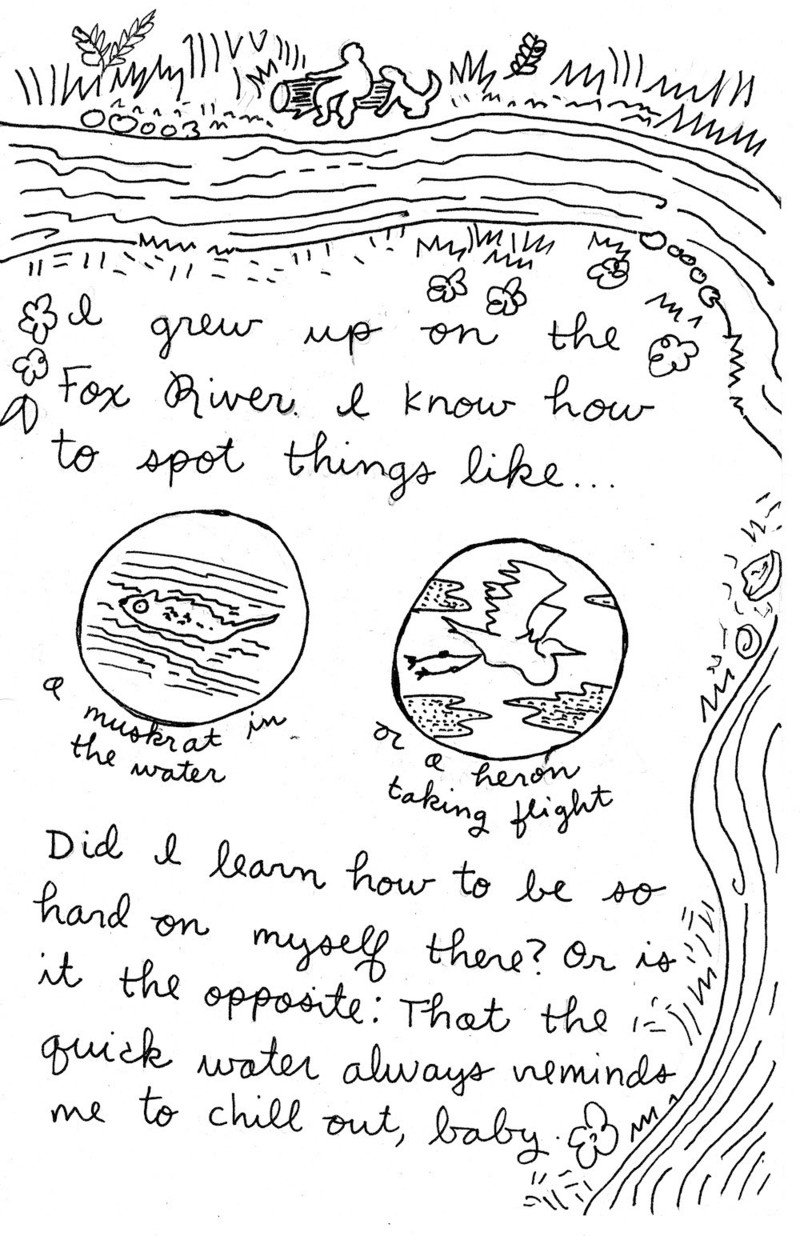 I grew up on the
Fox River. I know how
to spot things like...
a muskrat in
the water
or a heron
taking flight
Did I learn how to be so
hard on myself there? Or is
it the opposite: That the
quick water always reminds
me to chill out, baby.